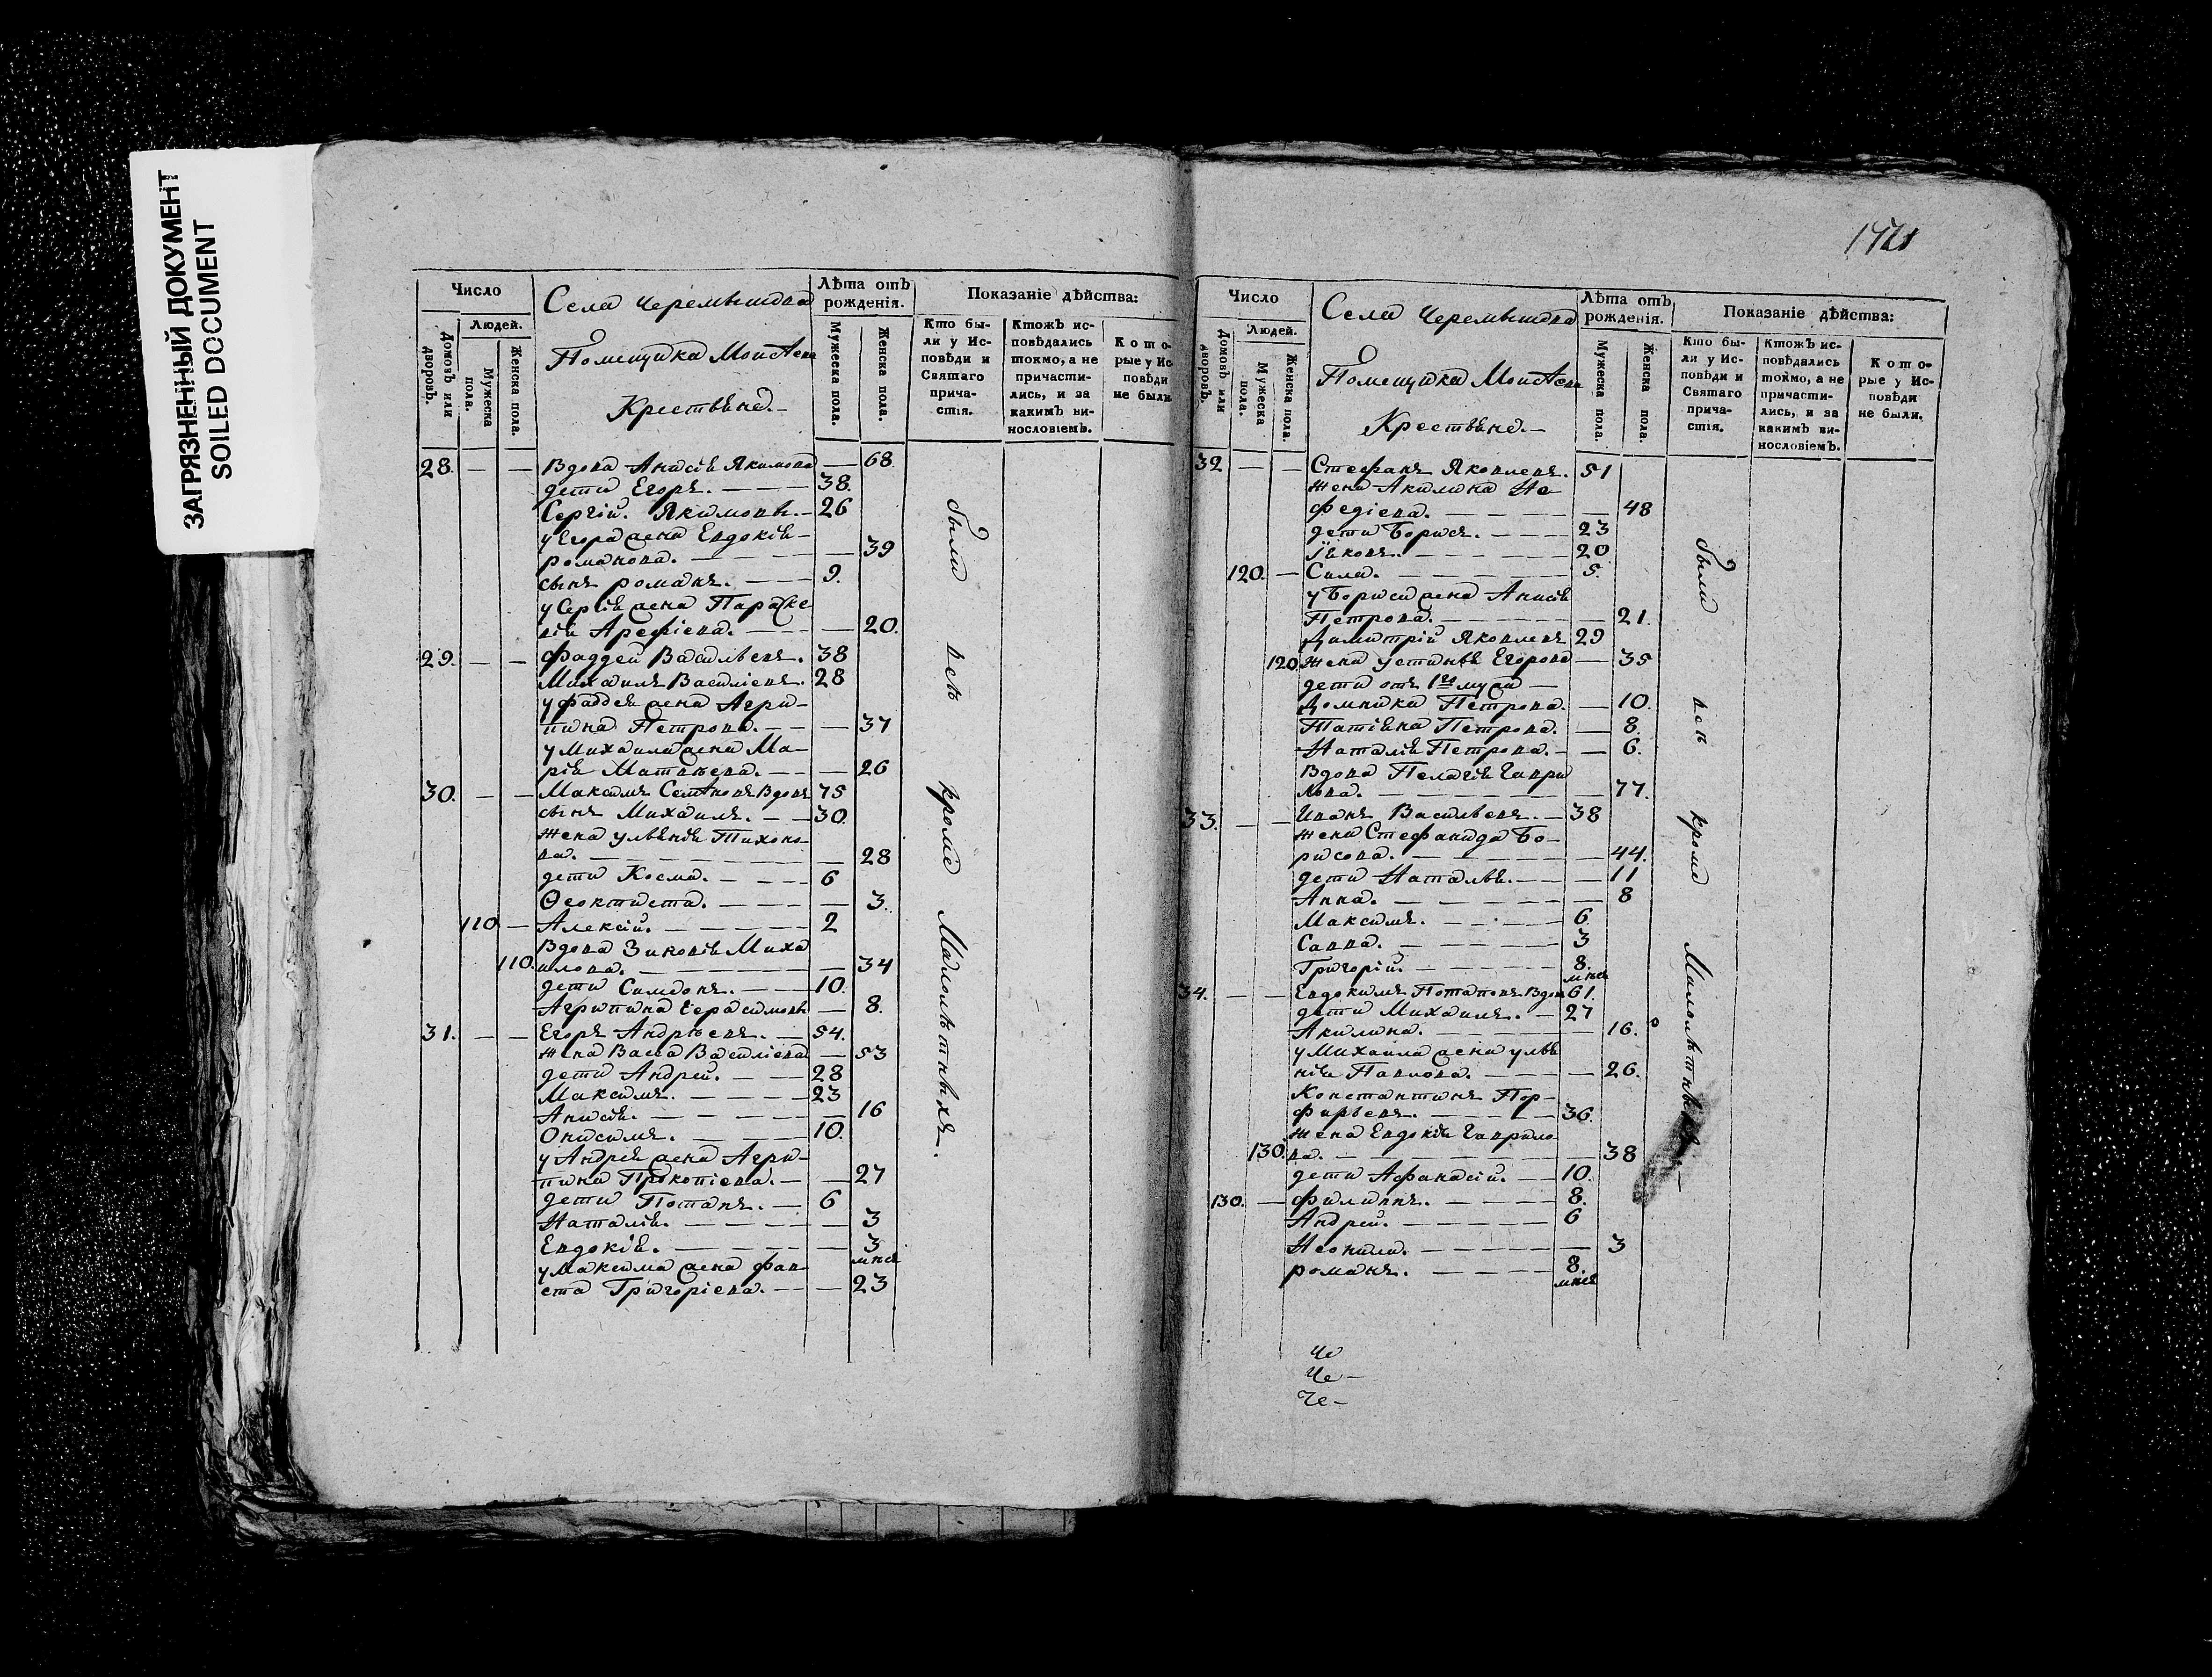 ЗАГРЯЗНЕННЫЙ ДОКУМЕНТ
SOILED DOCUMENT
Число
Людей.
Домовъ или дворовъ.
Мужеска пола.
Женска пола.
Села Черемышева
Помещика
Крестьяне. —
Лѣта отъ рожденія.
Мужеска пола.
Женска пола.
Показаніе дѣйства:
Кто бы-
ли у Ис-
повѣди и
Святаго
прича-
стія.
Ктожъ ис-
повѣдались
токмо, а не
причасти-
лись, и за
какимъ ви-
нословіемъ.
Кото-
рые у Ис-
повѣди
не были
28. — — Вдова Анисія Якимова — 68.
дети Егоръ. — — — 38.
Сергій. Якимовы. — 26
у Егора жена Евдокія —
романова. — — — — 39
сынъ романъ. — — — 9.
у Сергія жена Параске
вія Арефіева. — — — — 20.
29. — — Фаддей Васильевъ. 38
Михаилъ Василіевъ. 28
у фаддея жена Агри-
пина Петрова. — — — 37
у Михаила жена Ма-
рія Матвѣева. — — — 26
30. — — Максимъ Семеновъ Вдовъ 75
сынъ Михаилъ. — — 30.
жена ульянія Тихоно-
ва. — — — — — 28
дети Косма. — — — 6
Ѳеоктиста. — — — — 3.
110. — Алексій. — — — — 2
Вдова Зиновія Миха
110. илова. — — — — — 34
дети Симеонъ. — — 10.
Агрипина Герасимовы — 8.
31. — — Егоръ Андрѣевъ. — 54.
жена Васса Василіева — 53
дети Андрей. — — — 28
Максимъ. — — — — 23
Анисія. — — — — — 16
Онисимъ. — — — — 10.
у Андрея жена Агри-
пина Прокопіева. — — 27
дети Потапъ. — — 6
Наталія. — — — — — 3
Евдокія. — — — — — 3
мнся
у Максима жена фав-
ста Григоріева. — — — 23
были всѣ кроме Малолѣтныхъ.
Число
Людей.
Домовъ или дворовъ.
Мужеска пола.
Женска пола.
Села Черемышева
Помещика
Крестьяне. —
Лѣта отъ рожденія.
Мужеска пола.
Женска пола.
Показаніе дѣйства:
Кто бы-
ли у Ис-
повѣди и
Святаго
прича-
стія.
Ктожъ ис-
повѣдались
токмо, а не
причасти-
лись, и за
какимъ ви-
нословіемъ.
Кото-
рые у Ис-
повѣди
не были.
32 — — Стефанъ Яковлевъ. 51
жена Акилина Не
федіева. — — — — — 48
дети Борисъ. — — — 23
Іяковъ. — — — — — 20
120. — Сила. — — — — — 5.
у Бориса жена Анисія
Петрова. — — — — — 21.
Димитрій Яковлевъ 29
120 жена устинья Егорова — 35
дети отъ 1го мужа —
Домника Петрова. — 10.
Татіяна Петрова. — 8.
Наталія Петрова. — — 6.
Вдова Пелагія Гаври
лова. — — — — — 77.
33. — — Иванъ Васильевъ. — 38
жена Стефанида Бо-
рисова. — — — — — 44.
дети Наталья. — — — 11
Анна. — — — — — 8
Максимъ. — — — — 6
Савва. — — — — — 3
Григорій. — — — — 8.
мнся
34. — — Евдокимъ Потаповъ Вдов 61.
дети Михаилъ. — 27
Акилина. — — — — — 16.
у Михаила жена улья
нія Павлова. — — — — 26.
Константинъ Пор-
фирьевъ. — — — — 36.
жена Евдокія Гаврило
130. ва. — — — — — — 38
дети Афанасій. — — 10.
130. — филиппъ. — — — — 8.
Андрей. — — — — — 6
Неонила. — — — — — 3
романъ. — — — — 8.
мнся
были кроме Малолѣтныхъ. —
Че
Че —
Че —